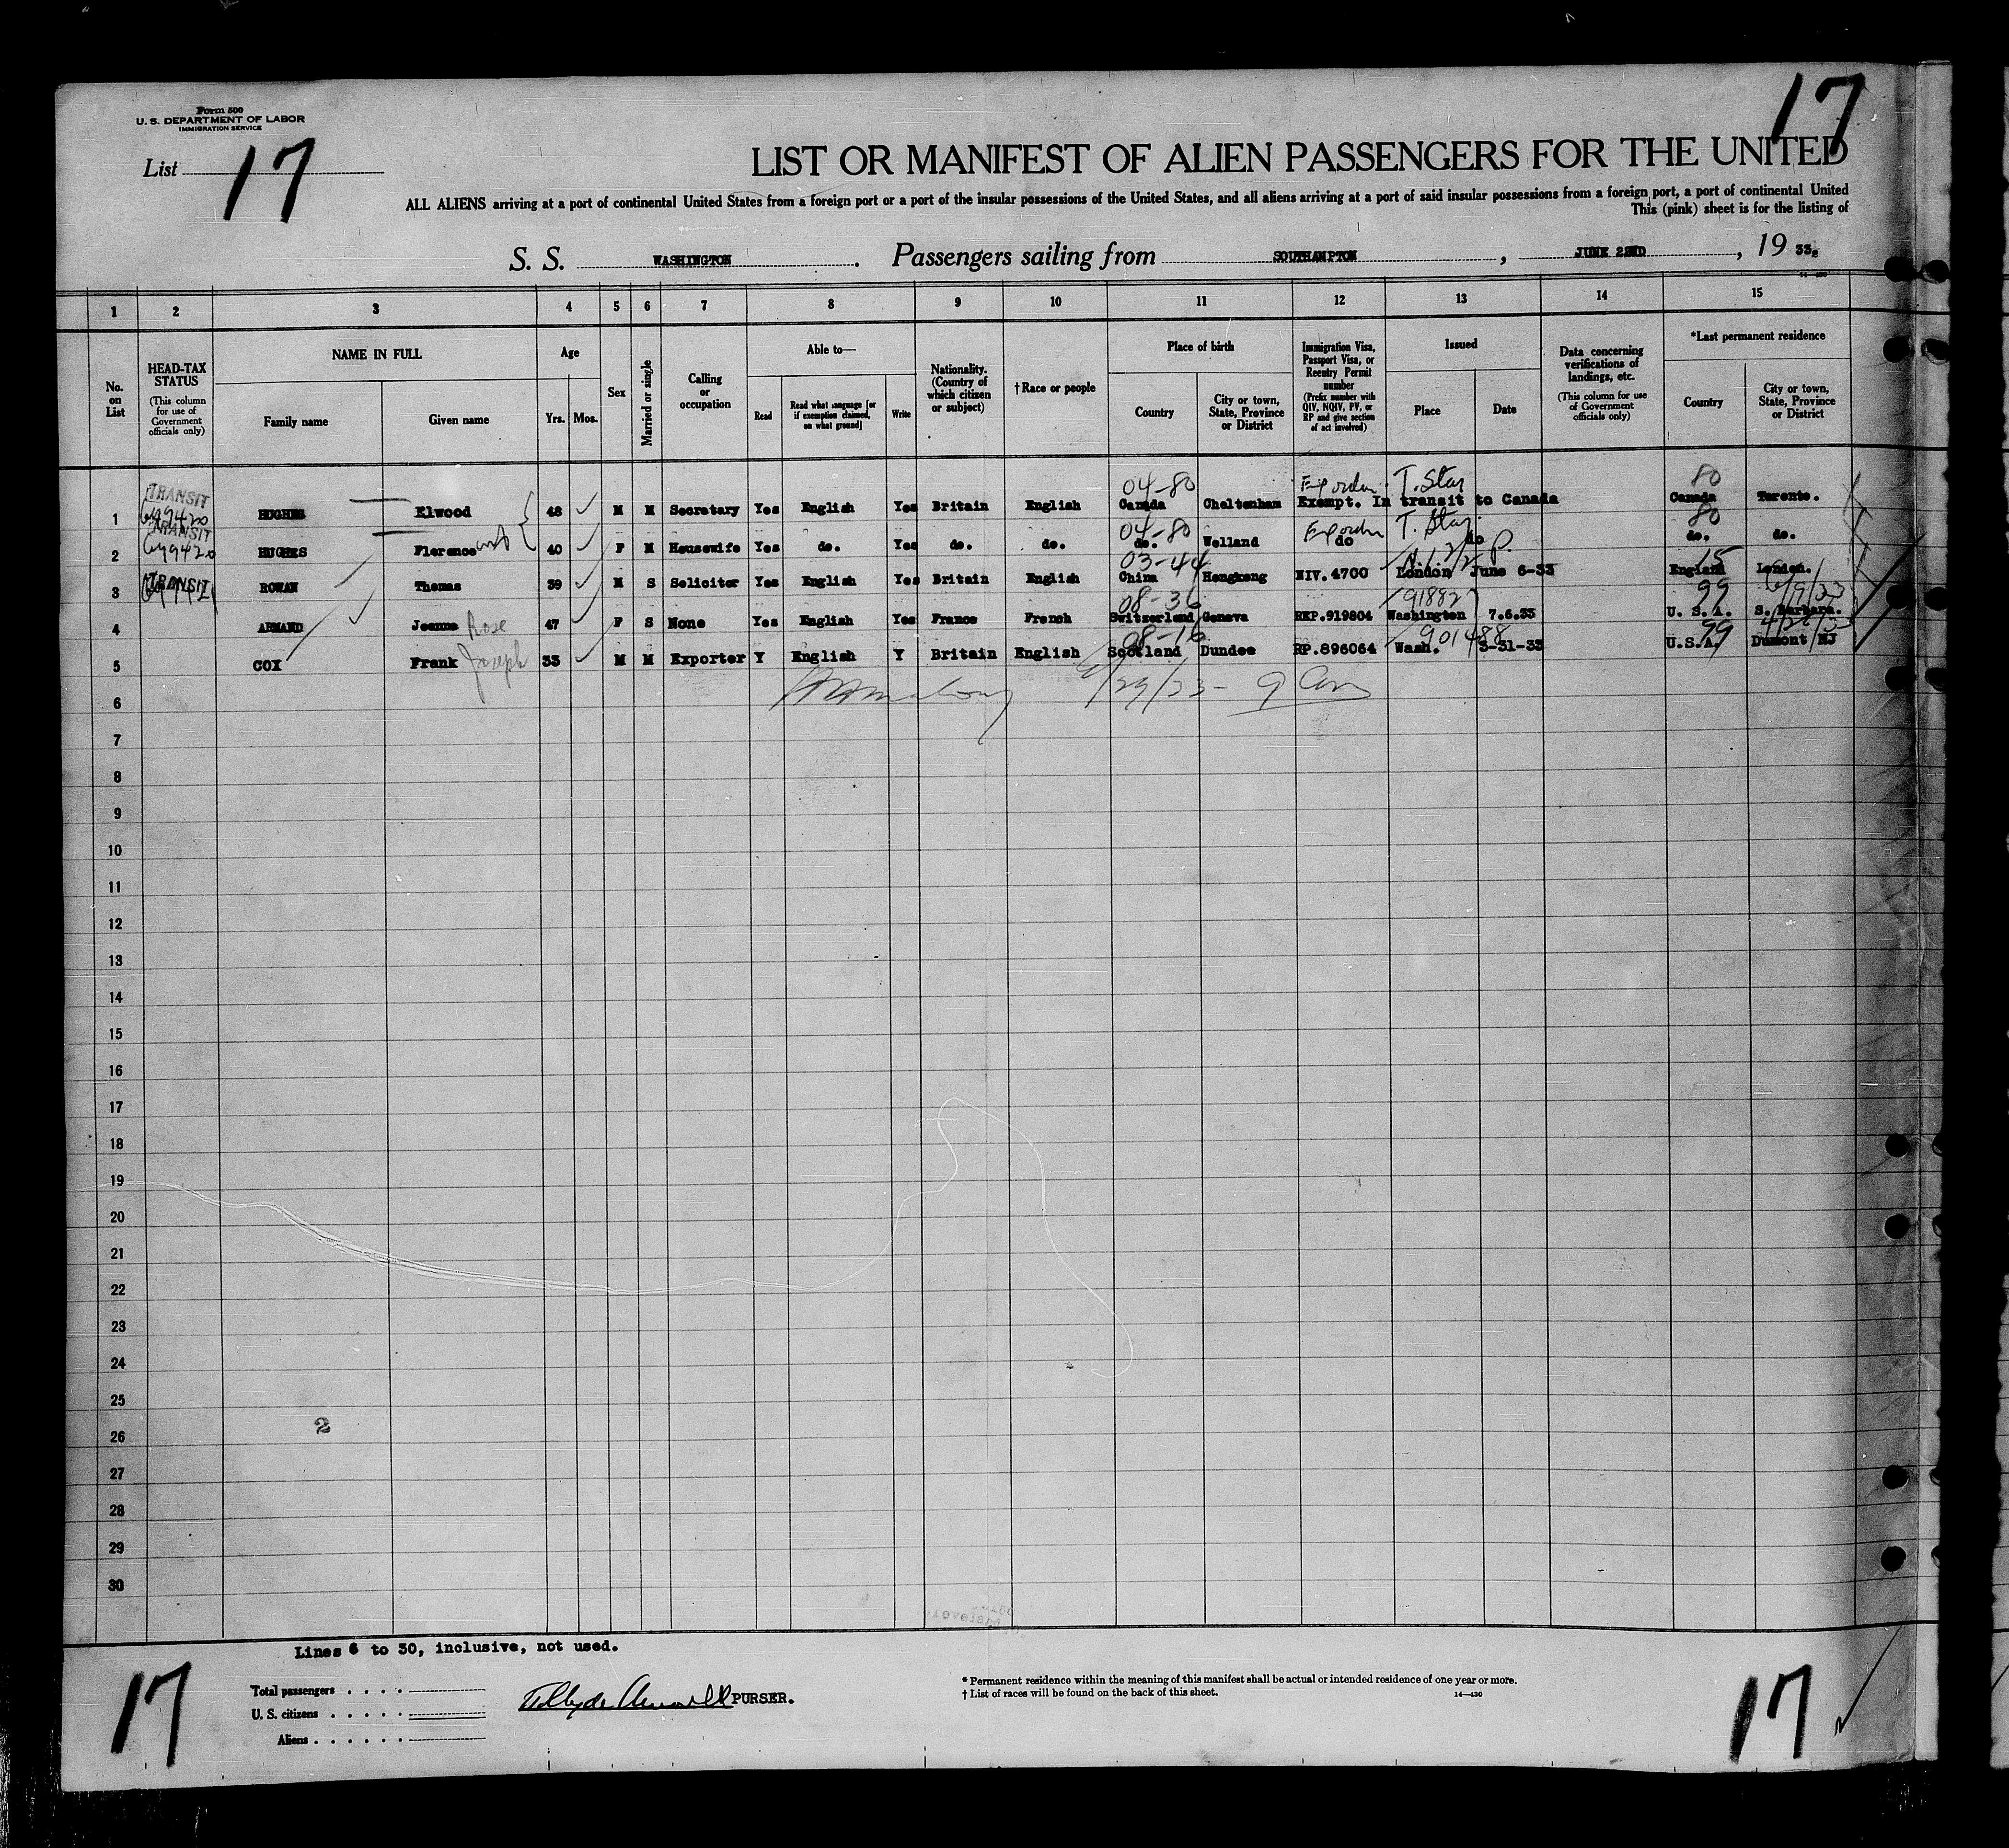 17
Form 500
U. S. DEPARTMENT OF LABOR
IMMIGRATION SERVICE
List 17
LIST OR MANIFEST OF ALIEN PASSENGERS FOR THE UNITED
ALL ALIENS arriving at a port of continental United States from a foreign port or a port of the insular possessions of the United States, and all aliens arriving at a port of said insular possessions from a foreign port, a port of continental United
This (pink) sheet is for the listing of
S. S. WASHINGTON. Passengers sailing from SOUTHAMPTON, JUNE 22ND, 19 33.
1 2 3 4 5 6 7 8 9 10 11 12 13 14 15
No. on List
HEAD-TAX STATUS (This column for use of Government officials only)
NAME IN FULL
Family name Given name
Age
Yrs. Mos.
Sex
Married or single
Calling or occupation
Able to—
Read Read what language [or if exemption claimed, on what ground] Write
Nationality. (Country of which citizen or subject)
† Race or people
Place of birth
Country City or town, State, Province or District
Immigration Visa, Passport Visa, or Reentry Permit number (Prefix number with QIV, NQIV, PV, or RP and give section of act involved)
Issued
Place Date
Data concerning verifications of landings, etc. (This column for use of Government officials only)
*Last permanent residence
Country City or town, State, Province or District
TRANSIT 04-80 T. Star 80
1 HUGHES Elwood 48 M M Secretary Yes English Yes Britain English Canada Cheltenham Exempt. In transit to Canada Canada Toronto.
TRANSIT 04-80 T. Star 80
2 HUGHES Florence 40 F M Housewife Yes do. Yes do. do. do. Welland do do do. do.
TRANSIT 03-44 15
3 ROWAN Thomas 39 M S Solicitor Yes English Yes Britain English China Hongkong NIV.4700 London June 6-33 England London.
08-36 99
4 ARMAND Jeanne Rose 47 F S None Yes English Yes France French Switzerland Geneva REP.919804 Washington 7.6.33 U. S. A. S. Barbara.
08-16 901488 99
5 COX Frank Joseph 33 M M Exporter Y English Y Britain English Scotland Dundee RP.896064 Wash. 3-31-33 U.S.A. Dumont NJ
6
7
8
9
10
11
12
13
14
15
16
17
18
19
20
21
22
23
24
25
2
26
27
28
29
30
Lines 6 to 30, inclusive, not used.
17
Total passengers . . . .
U. S. citizens . . . . .
Aliens . . . . . .
PURSER.
* Permanent residence within the meaning of this manifest shall be actual or intended residence of one year or more.
† List of races will be found on the back of this sheet.
14—430
17